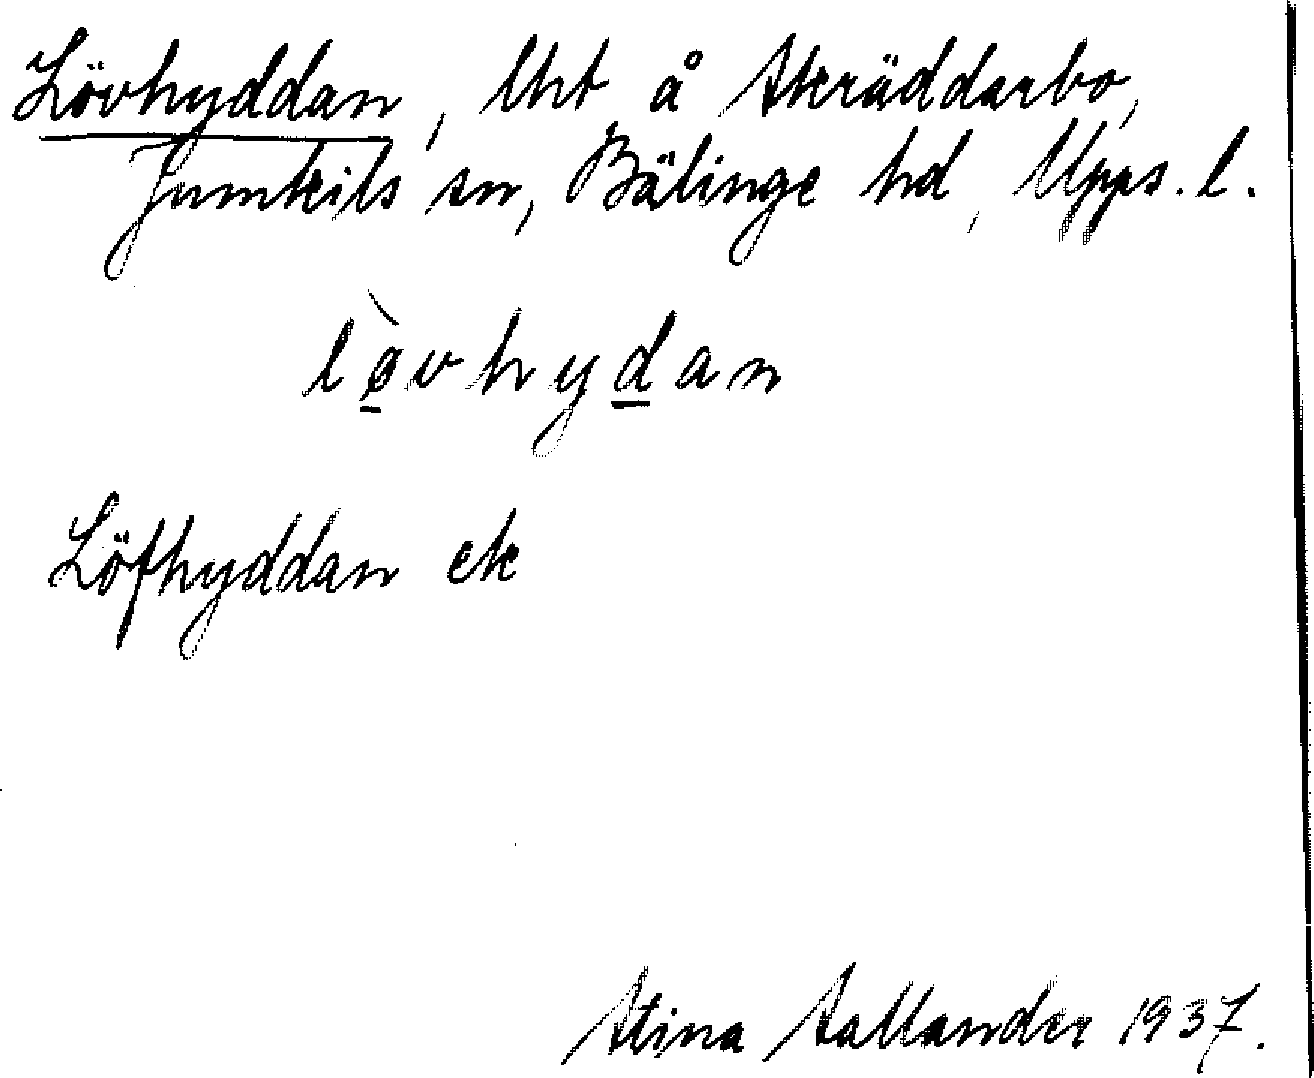 Lövhyddan, lht å Skräddarbo,
Jumkils sn, Bälinge hd, Upps. l.
lø̀vhydan
Löfhyddan ek
Stina Sallander 1937.